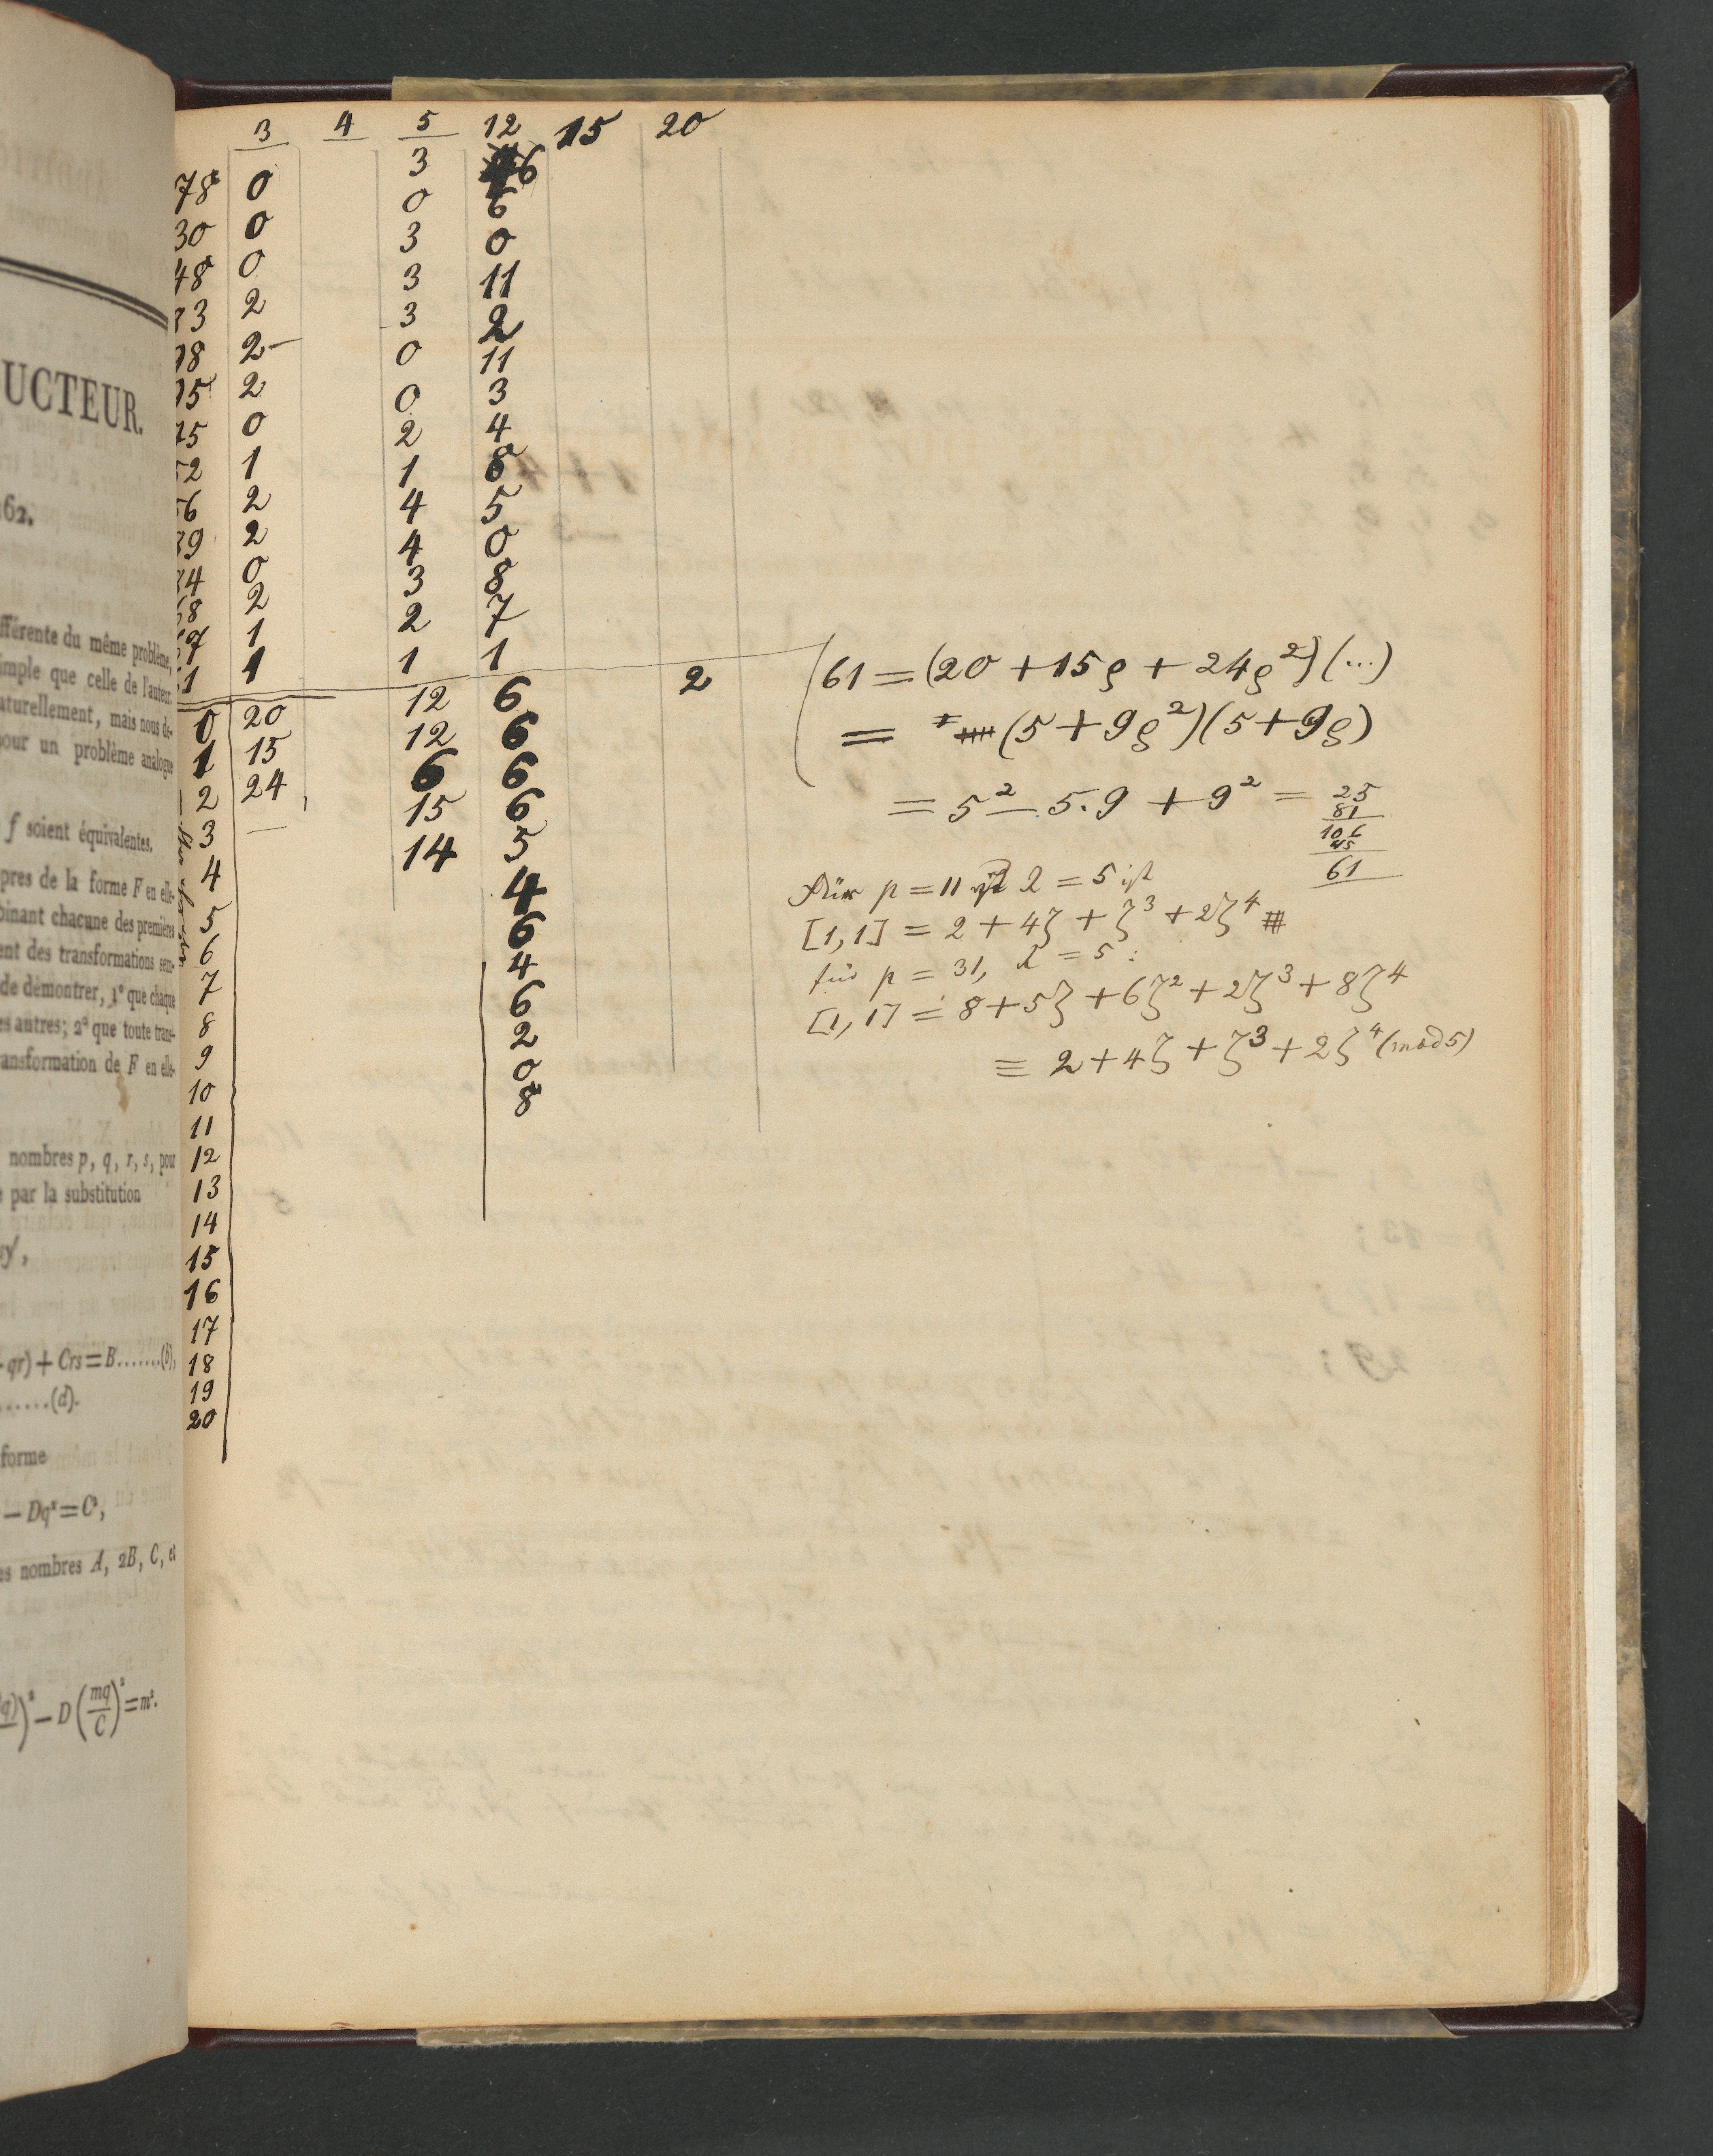 UCTEUR.
62.
fférente du même problème,
imple que celle de l'auteur.
aturellement, mais nous dé-
pour un problème analogue
f soient équivalentes.
pres de la forme F en elle-
binant chacune des premières
ent des transformations sem-
de démontrer, 1° que chaque
es antres; 2° que toute trans-
ansformation de F en elle-
nombres p, q, r, s, pour
par la substitution
qr) + Crs = B.......(b),
......(d).
forme
— Dq² = C²,
es nombres A, 2B, C, et
q))² — D (mq/C)² = m².
3 4 5 12 15 20
3 6
78 0 0 6
30 0 3 0
48 0 3 11
3 2 3 2
18 2 0 11
15 2 0 3
15 0 2 4
52 1 1 8
56 2 4 5
39 2 4 0
24 0 3 8
8 2 2 7
1 1 1
1 1
0 20 12 6 2
1 15 12 6
2 24 6 6
3 15 6
4 14 5
5 4
6 6
7 4
8 6
9 2
10 0
11 8
12
13
14
15
16
17
18
19
20
61 = (20 + 15ρ + 24ρ²)(...)
= (5 + 9ρ²)(5 + 9ρ)
= 5² — 5.9 + 9² = 25
81
106
45
61
Für p = 11 λ = 5 ist
[1,1] = 2 + 4ζ + ζ³ + 2ζ⁴
für p = 31, λ = 5 :
[1,1] = 8 + 5ζ + 6ζ² + 2ζ³ + 8ζ⁴
≡ 2 + 4ζ + ζ³ + 2ζ⁴ (mod 5)